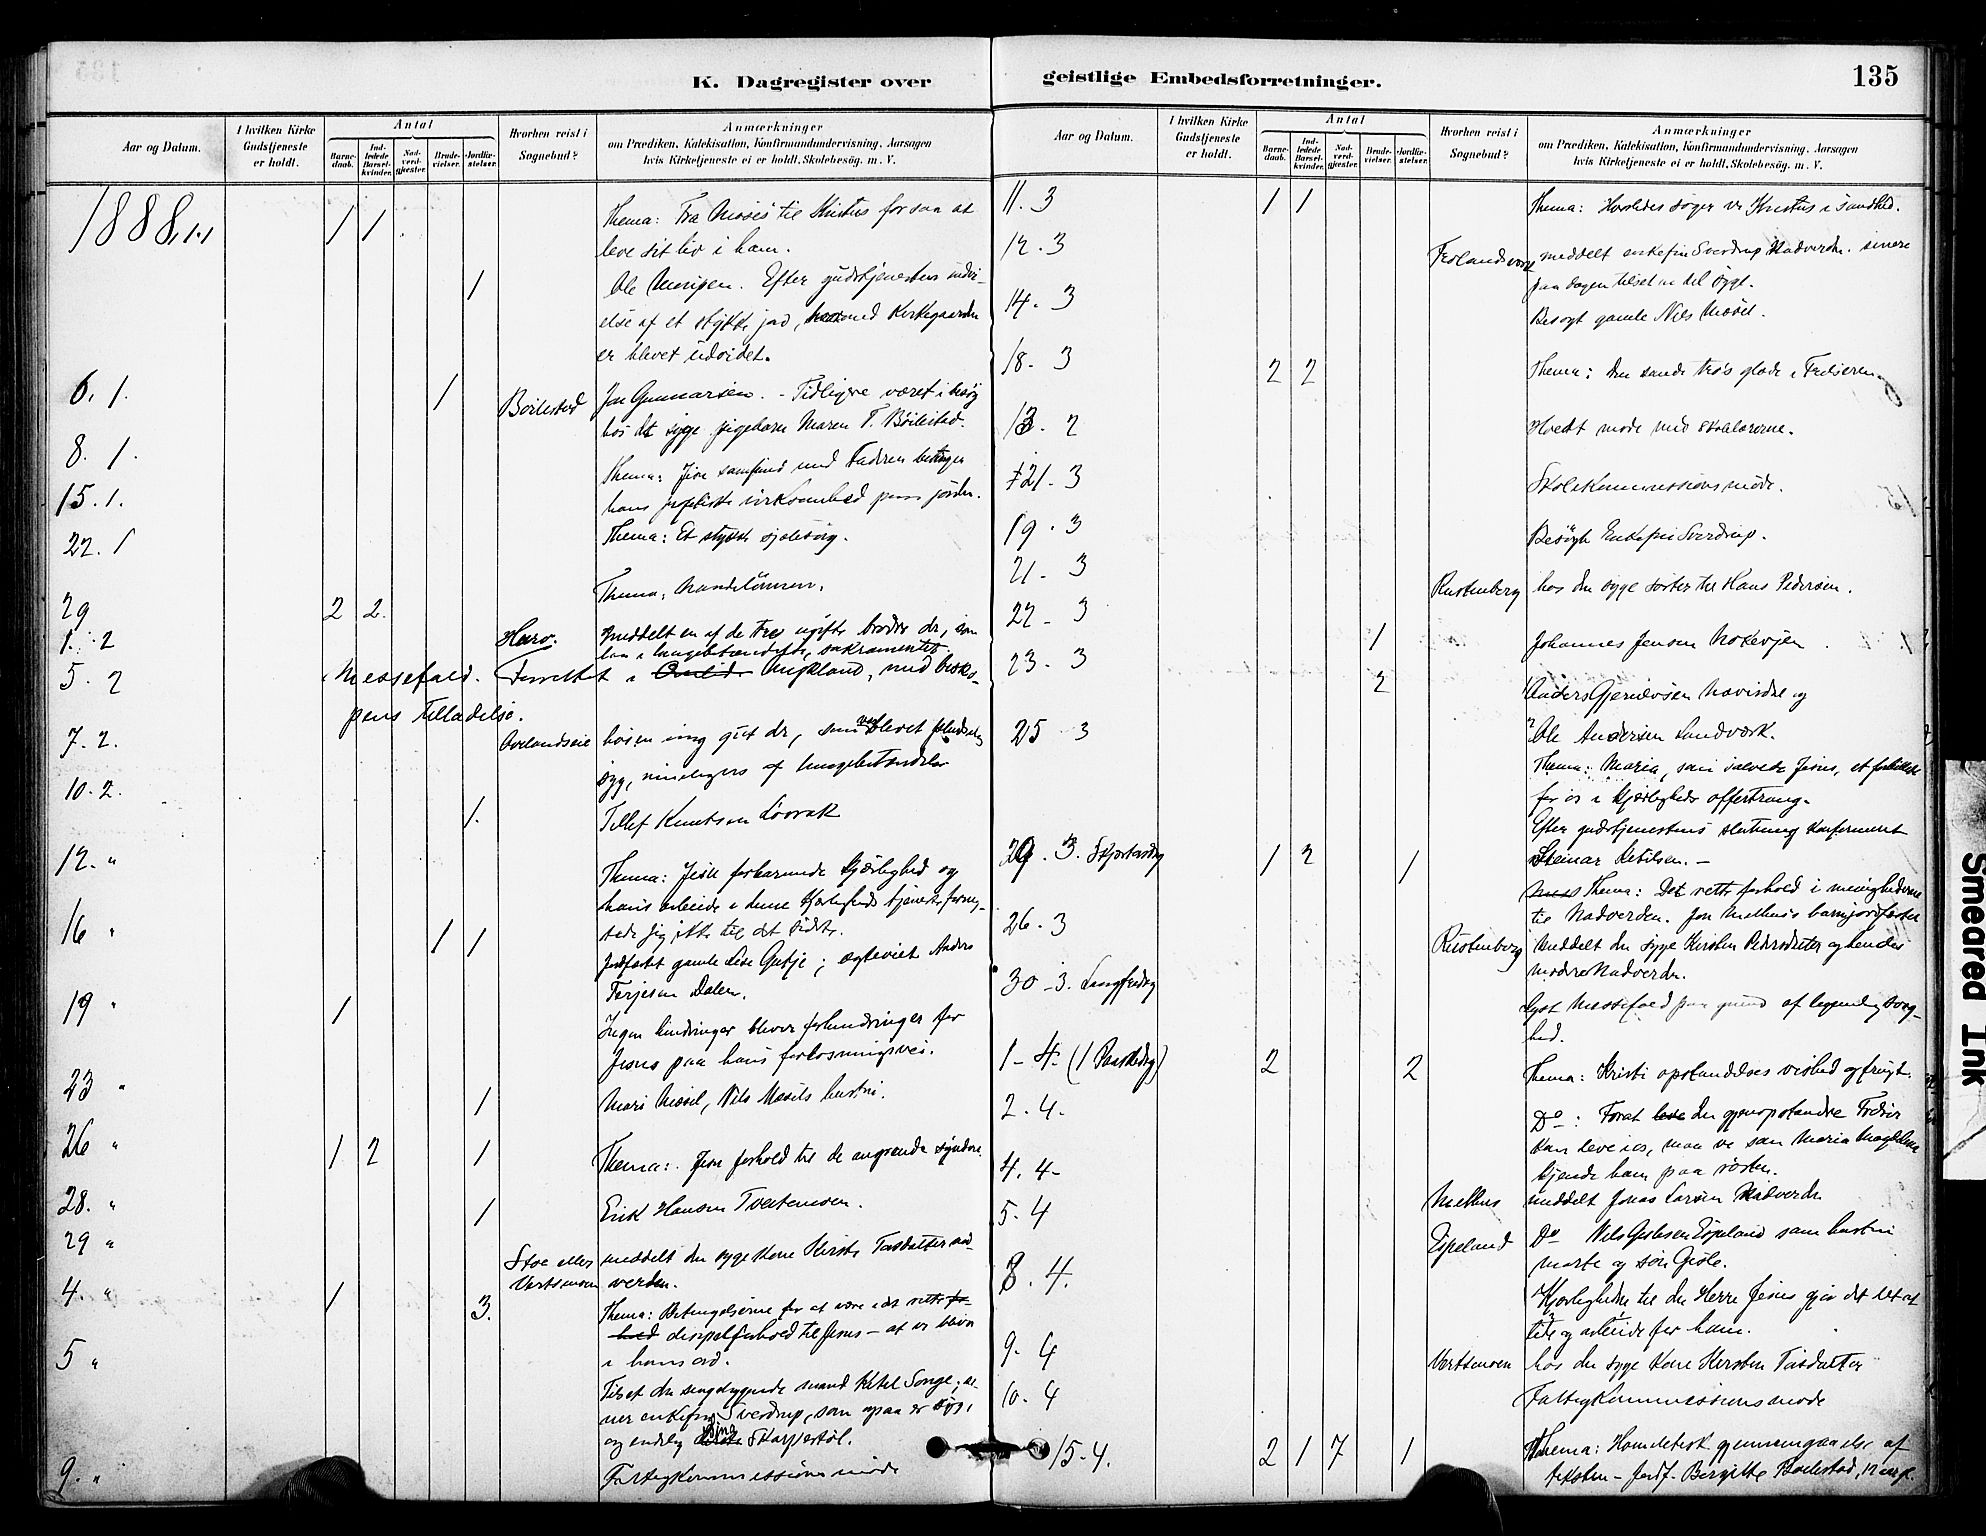 K. Dagregister over
Aar og Datum.
I hvilken Kirke
Gudstjeneste
er holdt.
Antal
Barne-
daab.
Ind-
ledede
Barsel-
kvinder.
Nad-
verd-
gjæster.
Brude-
vielser.
Jordfæ-
stelser.
Hvorhen reist i
Sognebud?
Anmærkninger
om Prædiken, Katekisation, Konfirmandundervisning, Aarsagen
hvis Kirketjeneste ei er holdt, Skolebesøg, m. V.
1888, 1.1 1 1 Thema: Fra Moses til Kristus for saa at
leve sit liv i ham.
1 Ole Efter gudstjenesten indvi-
else af et stykke jord, med Kirkegaarden
er blevet udvidet.
6. 1. 1 Bøilestad Jon Gunnarsen. - Tidligere været i besøg
hos det syge pigebarn Maren T. Bøilestad.
8. 1. Thema: Jesu samfund med Faderen betinger
hans virksomhed paa jorden.
15. 1. Thema: Et stykke sjælesorg.
22. 1 Thema:
29 2 2
1. 2 meddelt en af de tre ugifte brødre der, som
laa i lungebetændelse, sakramentet
5. 2 Messefald. Forrettet i Mykland, med bisko-
pens tilladelse.
7. 2. hos en ung gut der, som var blevet pludselig
syg, rimeligvis af lungebetændelse
10. 2. 1. Tellef Knutsen Løvrak
12. " Thema: Jesu forbarmende Kjærlighed og
hans arbeide i denne Kjærligheds tjeneste
sig ikke til det sidste.
16 " 1 1 Jordfæstet gamle Lise ; ægteviet Anders
Terjesen Dalen.
19 " 1 Ingen hindringer bliver forhindringer for
Jesus paa hans forløsningsvei.
23 " 1 Mari Mæsel, Nils Mæsels hustru.
26 " 1 2 1 Thema: Jesu forhold til de angrende syndere
28. " 1 Erik Hansen Tveitemoen.
29 " Stoe eller
meddelt den syge Kone Kirsti Tarsdatter nad-
verden.
4. " 1 3. Thema: Betingelserne for at være i det rette for-
hold discipelforhold til Jesus - at vi bliver
i hans ord.
5 " Tilset den sengeliggende mand Ketel Songe,
Sverdrup, som er syg,
og endelig Skarpestøl.
9. " Fattigkommissionsmøde
geistlige Embedsforretninger.
135
Aar og Datum.
I hvilken Kirke
Gudstjeneste
er holdt.
Antal
Barne-
daab.
Ind-
ledede
Barsel-
kvinder.
Nad-
verd-
gjæster.
Brude-
vielser.
Jordfæ-
stelser.
Hvorhen reist i
Sognebud?
Anmærkninger
om Prædiken, Katekisation, Konfirmandundervisning, Aarsagen
hvis Kirketjeneste ei er holdt, Skolebesøg, m. V.
11. 3 1 1 Thema: Hvorledes søger vi Kristus i sandhed.
12. 3 Frolandsverk meddelt enkefru Sverdrup Nadverden. senere
paa dagen tilset en del syge.
14. 3 Besøgt gamle Nils Mæsel.
18. 3 2 2 Thema: Den sande tros glæde i Frelseren
13. 2 Holdt møde med skolelærerne.
21. 3 Skolekommissionsmøde.
19. 3 Besøgt Enkefru Sverdrup.
21. 3 Rustenberg hos den syge Hans Pedersen.
22. 3 1 Johannes Jensen
23. 3 2 1 Anders og
2 Ole Andersen Landverk.
25 3 Thema: Maria, som salvede Jesus, et forbillede
for os i Kjærligheds offertrang.
Efter gudstjenestens slutning konfirmeret
Steinar Ketilsen. -
29. 3. Skjærtorsdag 1 2 1 Thema: Det rette forhold i menighederne
til Nadverden. Jon Melhus's barn jordfæstet
26. 3 Rustenberg Meddelt den syge Kirsten Pedersdatter og hendes
moder Nadverden.
30 - 3. Langfredag Messefald paa grund af legemlig svag-
hed.
1 - 4. (1 Paaskedag) 2 2 Thema: Kristi opstandelses vished og frugt.
2. 4. Do : Forat den gjenopstandne Frelser
kan leve i os, maa vi som Maria Magdalena
kjende ham paa røsten.
4. 4 - Melhus meddelt Jonas Larsen Nadverden
5. 4 Espeland Do Nils Espeland samt hustru
Marte og søn
8. 4. Kjærligheden til den Herre Jesus gjør det let at
lide og arbeide for ham.
9. 4 hos den syge Kone Kirsten Tarsdatter
10. 4 Fattigkommissionsmøde
15 - 4. 2 1 7 1 Thema: Homiletisk gjennemgaaelse af
teksten - Jordf. Bergitte Bøilestad, 12 aar gl.
Smeared Ink